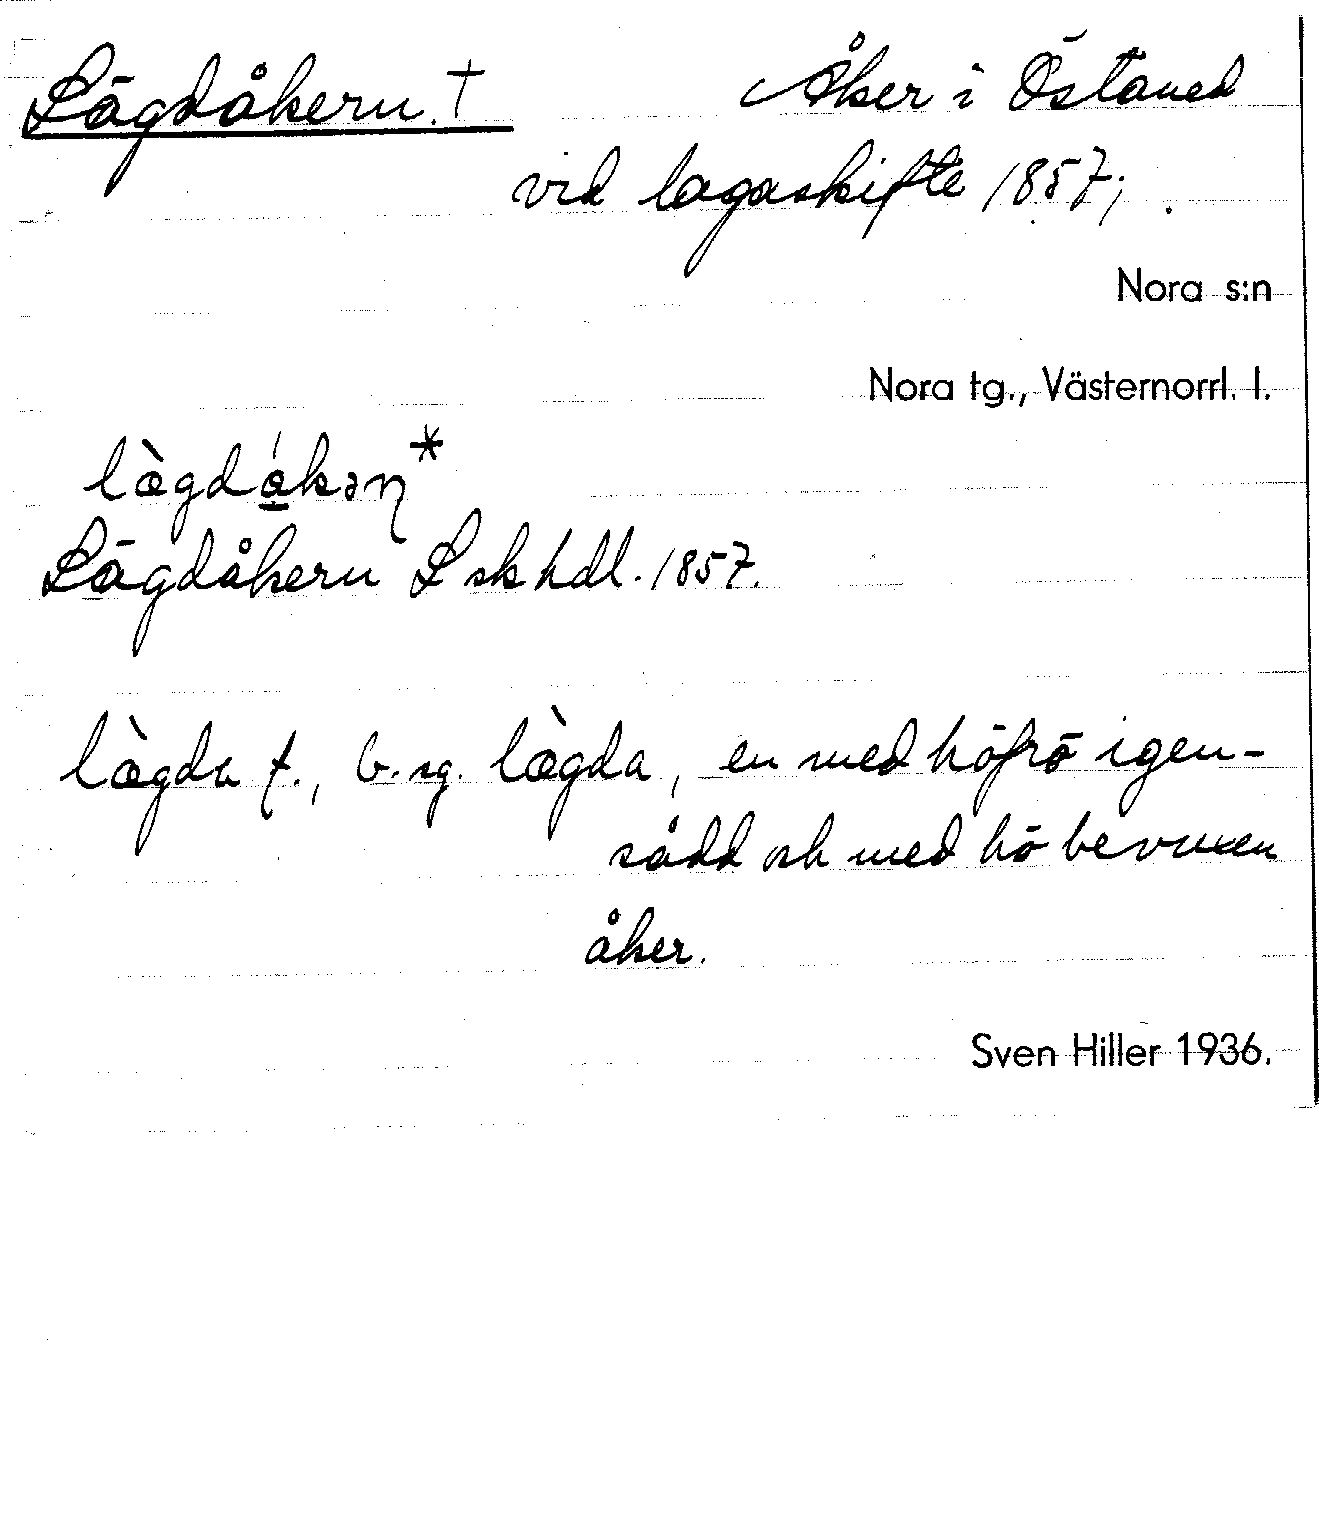 Lägdåkern. † Åker i Östaned
vid lagaskifte 1857;
Nora s:n
Nora tg., Västernorrl. l.
lǽgdåkəɳ*
Lägdåkern Lskhdl. 1857.
lægda f., b. sg. lægda, en med höfrö igen-
sådd och med hö bevuxen
åker.
Sven Hiller 1936.